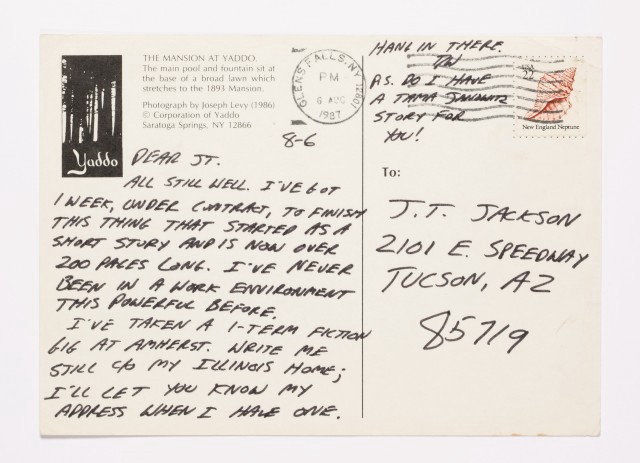 THE MANSION AT YADDO.
The main pool and fountain sit at
the base of a broad lawn which
stretches to the 1893 Mansion.
Photograph by Joseph Levy (1986)
© Corporation of Yaddo
Saratoga Springs, NY 12866
Yaddo
GLENS FALLS, NY 12801
PM
6 AUG
1987
USA
22
New England Neptune
8-6
DEAR JT.
ALL STILL WELL. I'VE GOT
1 WEEK, UNDER CONTRACT, TO FINISH
THIS THING THAT STARTED AS A
SHORT STORY AND IS NOW OVER
200 PAGES LONG. I'VE NEVER
BEEN IN A WORK ENVIRONMENT
THIS POWERFUL BEFORE.
I'VE TAKEN A 1-TERM FICTION
GIG AT AMHERST. WRITE ME
STILL C/O MY ILLINOIS HOME;
I'LL LET YOU KNOW MY
ADDRESS WHEN I HAVE ONE.
HANG IN THERE.
DW
P.S. DO I HAVE
A TAMA JANOWITZ
STORY FOR
YOU!
To:
J.T. JACKSON
2101 E. SPEEDWAY
TUCSON, AZ
85719